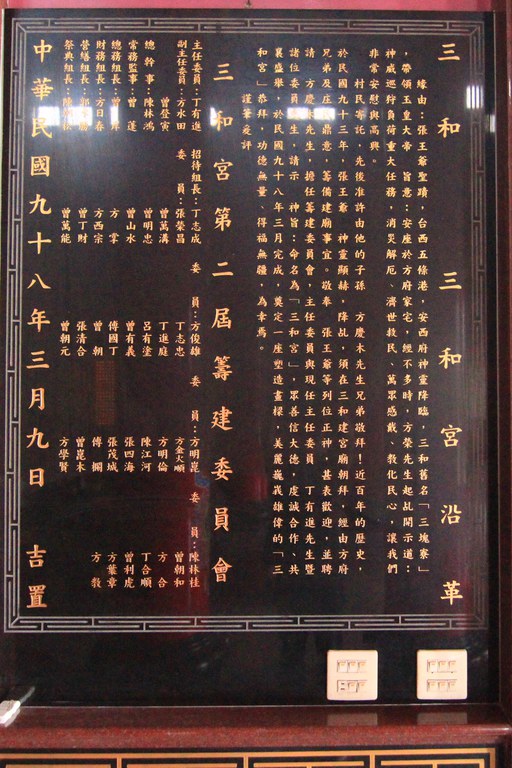 三和 三和宮沿革
緣由：張王爺聖蹟，台西五條港，安西府神靈降臨，三和舊名「三塊寮」
，帶領玉皇大帝 旨意：安座於方府家宅，經不多時，方榮先生起乩開示道：
神威巡狩負荷重大任務，消災解厄、濟世救民、萬眾感戴、教化民心，讓我們
非常安慰與高興。
村民等託，先後准許由他的子孫 方慶木先生兄弟敬拜！近百年的歷史，
於民國九十三年，張王爺 神靈顯赫，降乩，須在三和建宮廟朝拜，經由方府
兄弟及庄 鼎意，籌備建廟事宜。敬奉 張王爺等列位正神，甚表歡迎，並聘
請 方慶 先生，擔任籌建委員會，主任委員與現任主任委員 丁有進先生暨
諸位委員 生，請示 神旨：命名為「三和宮」，眾善信大德，虔誠合作、共
襄盛舉，於民國九十八年三月完成，奠定一座塑造畫樑，美麗巍峨雄偉的「三
和宮」恭拜，功德無量、得福無疆，為幸焉。
謹筆
三和宮第二屆籌建委員會
主任委員：丁有進 招待組長：丁志成 委員：方俊雄 委員：方明崑 委員：陳林桂
副主任委員：方水田 委員：張榮昌 丁志忠 方金火順 曾朝和
曾登寅 曾萬溝 丁進庭 方明倫 方合
總幹事：陳林鴻 曾明忠 呂有塗 陳江河 丁合順
常務監事：曾蓬 曾山水 曾有義 張四海 曾利虎
總務組長：曾 方掌 傅國丁 張茂城 方葉章
財務組長：方日春 方西宗 曾朝 傅欄 方敎
營繕組長： 曾丁財 張清合 曾崑木
祭典組長： 曾萬能 曾朝元 方學賢
中華民國九十八年三月九日 吉置